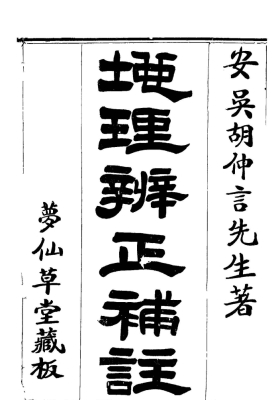 安吳胡仲言先生著
地理辨正補註
夢仙草堂藏板